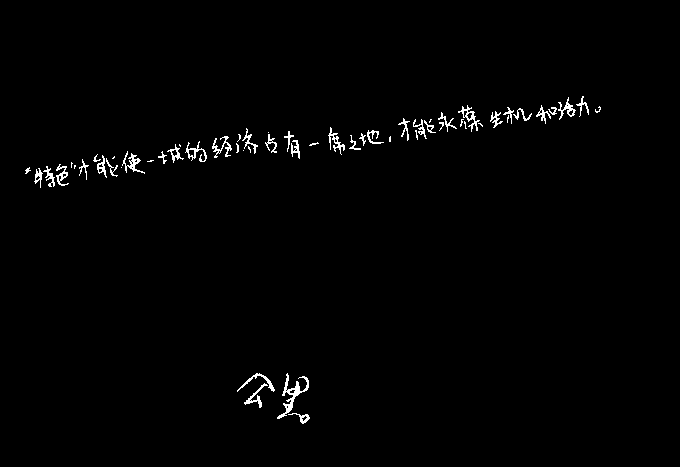 “特色”才能使一城的经济占有一席之地，才能永葆生机和活力。